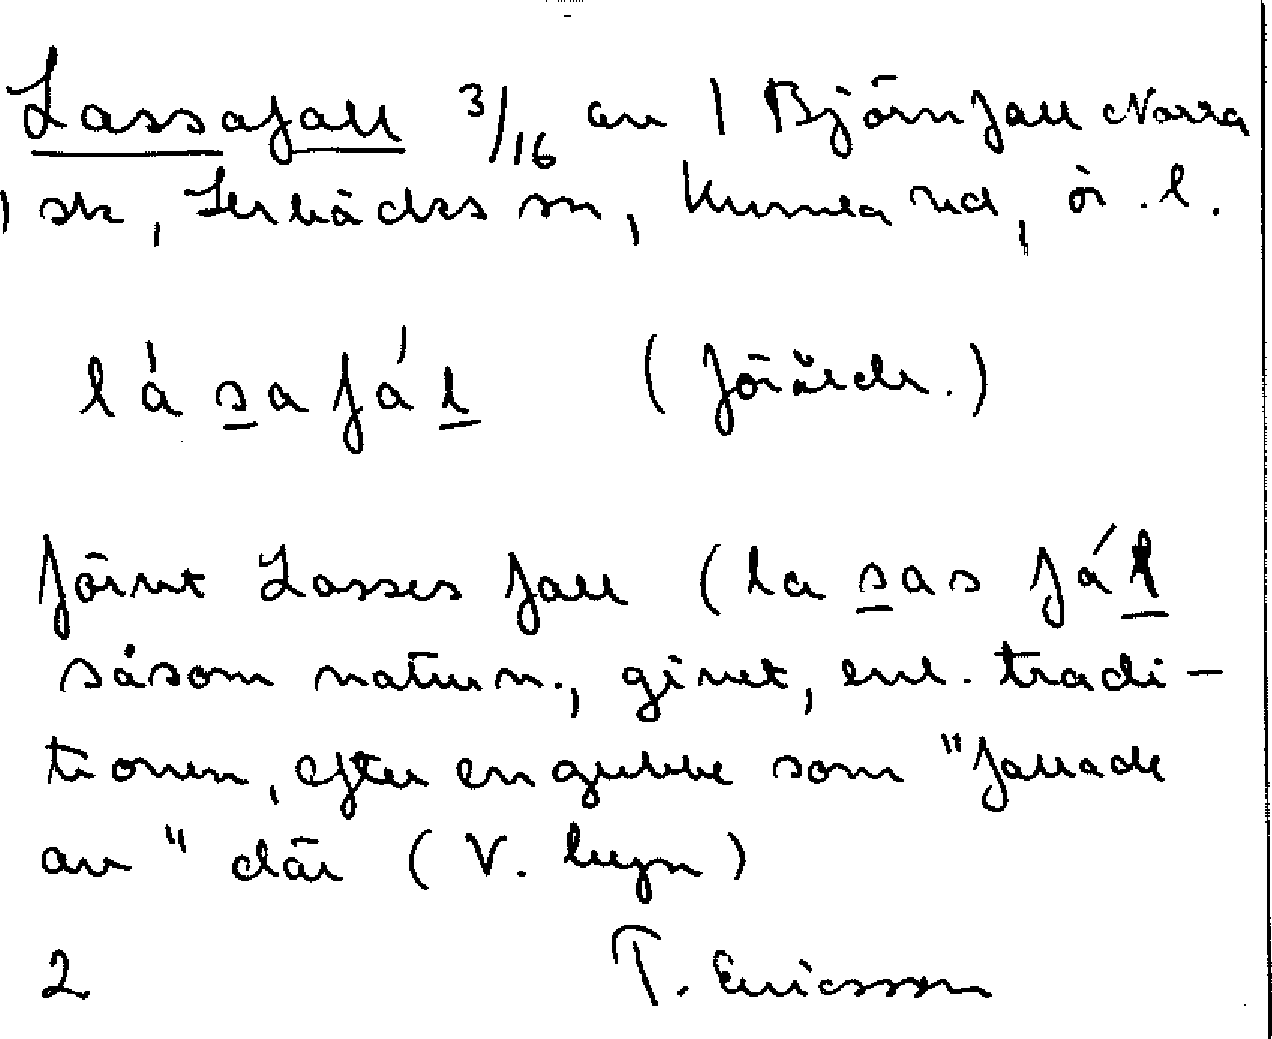 Lassafall 3/16 av 1 Björnfall Norra
1 sk, Lerbäcks sn, Kumla hd, ör. l.
lá s a fá l (föråldr.)
förut Lasses fall (la s as fá l
såsom naturn., givet, enl. tradi-
tionen, efter en gubbe som "fallade
av" där (V. lugn)
2 T. Ericsson